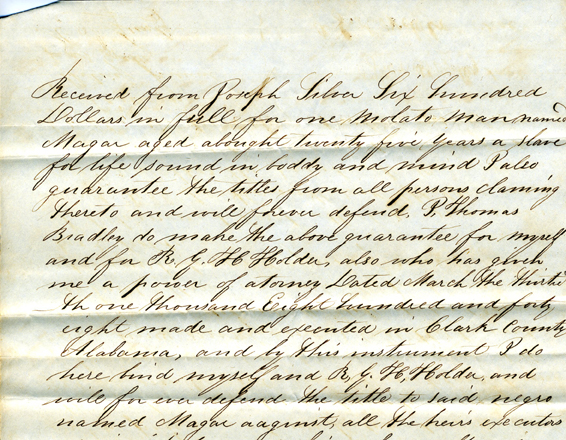 Received from Joseph Silver Six hundred
Dollars in full for one molato man named
Magar aged abought twenty five years a slave
for life sound in boddy and mind I also
guarantee the tittes from all persons claming
thereto and will forever defend, I, Thomas
Bradley do make the above guarantee for myself
and for R, G, H Holder, also who has given
me a power of atorney Dated March the thirtie
th one thousand Eight hundred and forty
eight made and executed in Clark County
Alabama, and by this instrument I do
here bind myself and R, G, H, Holder, and
will for ever defend the title to said, negro
named Magar aaginst, all the heirs executors